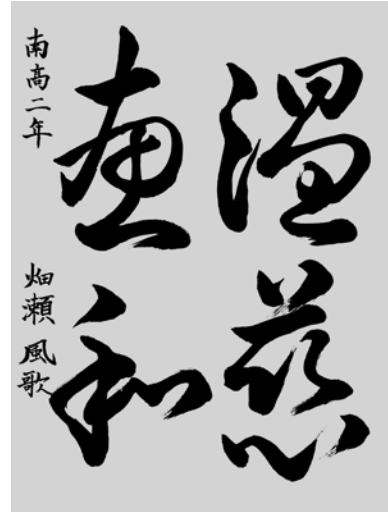 温慈
恵和
南高二年 畑瀬風歌